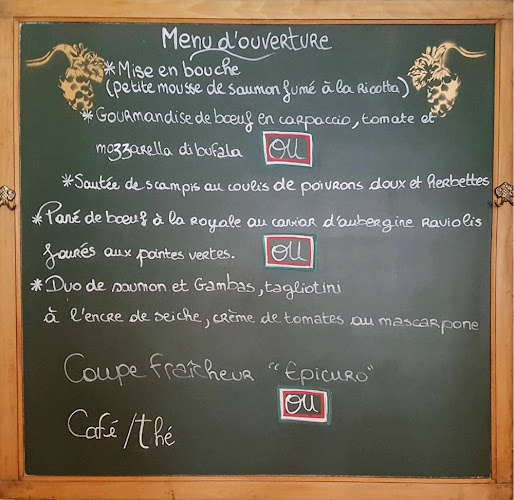 Menu d'ouverture
*Mise en bouche
(petite mousse de saumon fumé à la Ricotta)
*Gourmandise de bœuf en carpaccio, tomate et
mozzarella di bufala OU
*Sautée de scampis au coulis de poivrons doux et herbettes
*Pané de bœuf à la royale au caviar d'aubergine raviolis
fourés aux pointes vertes. OU
*Duo de saumon et Gambas, tagliotini
à l'encre de seiche, crème de tomates au mascarpone
Coupe fraîcheur "Epicuro"
OU
Café/thé